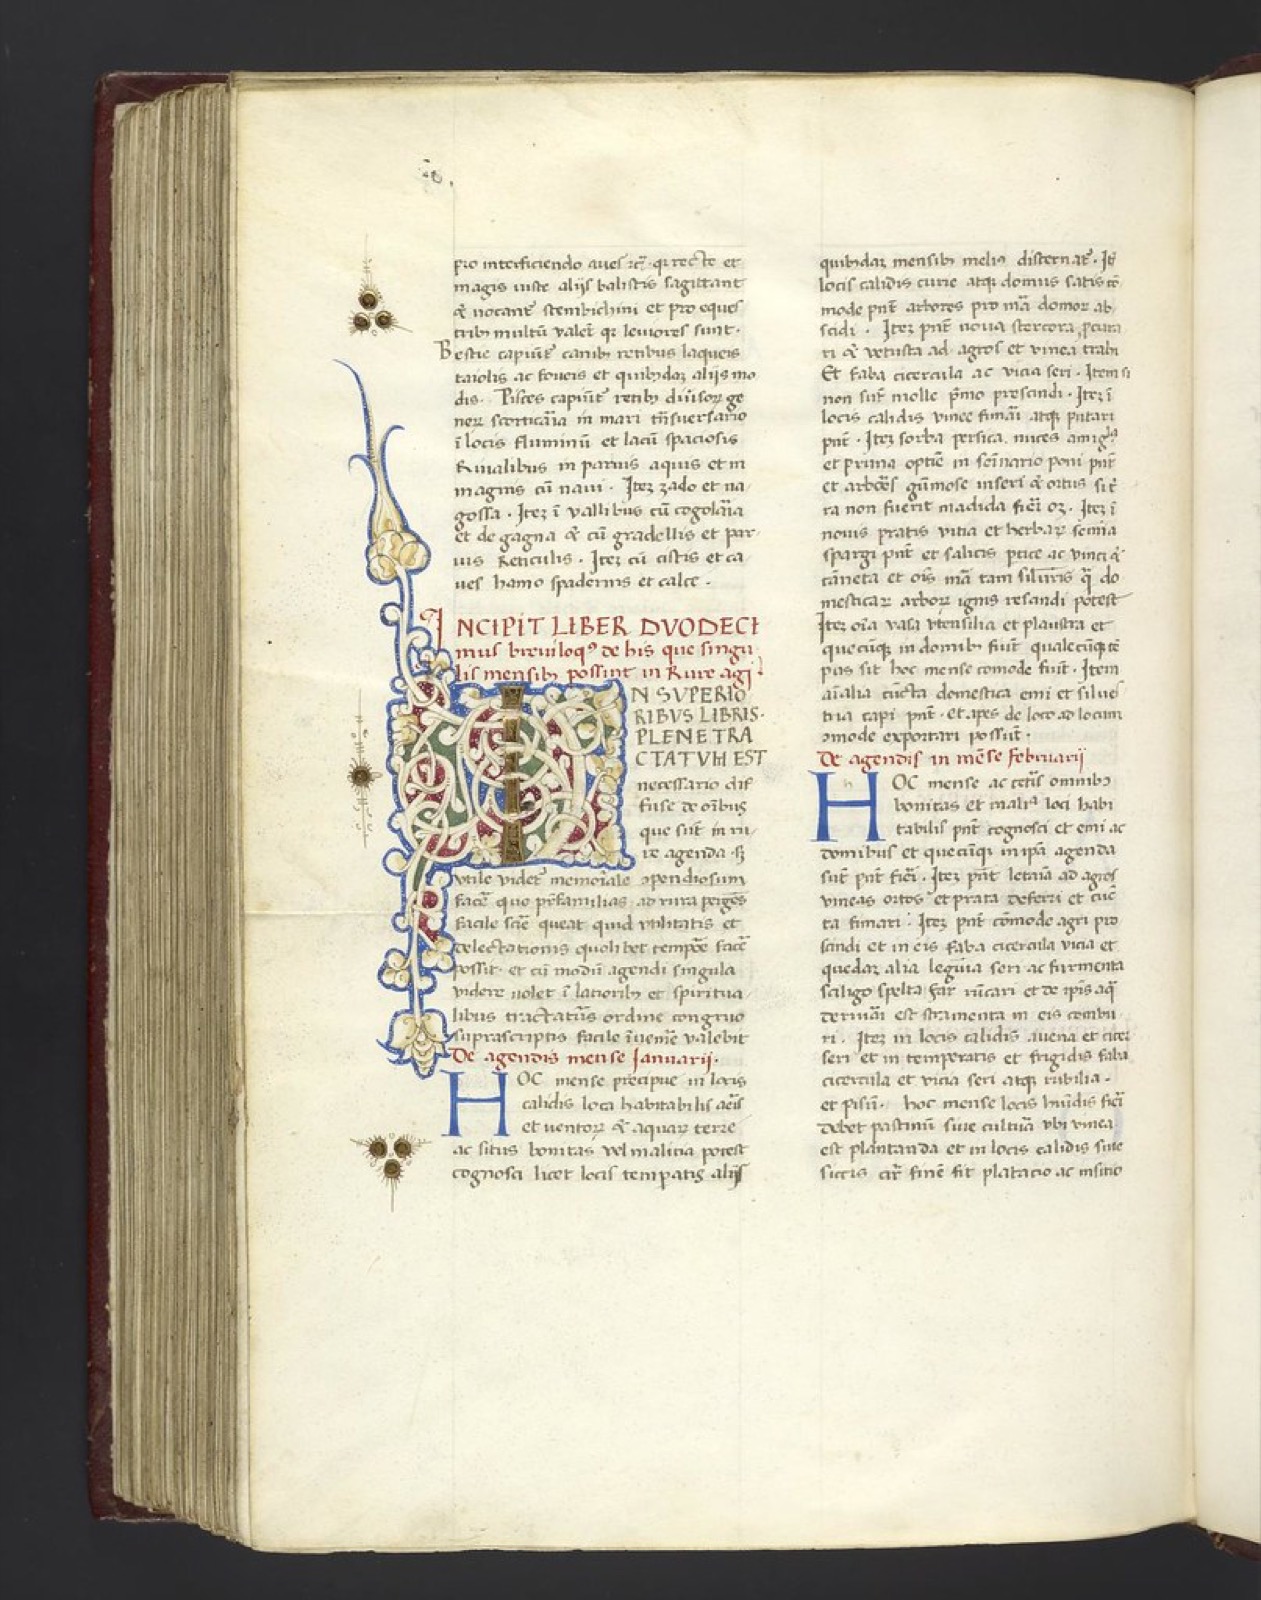 pro interficiendo aues ⁊c̃. qr recte et
magis iuste alijs balistis sagittant
q̃ uocant̃ stembichini et pro eques
trib multũ valẽt qr leuiores sunt.
Bestie capiũt̃ canib retibus laqueis
taiolis ac foueis et quibusdaꝫ alijs mo
dis. Pisces capiũt̃ retib diuisoꝝ ge
neꝝ scorticãia in mari t̃nsuersario
ĩ locis fluminũ et lacũ spaciosis
Riualibus in paruis aquis et in
magnis cũ naui. Iteꝫ zado et na
gossa. Iteꝫ ĩ vallibus cũ cogolãia
et de gagna q̃ cũ gradellis et par
uis Reticulis. Iteꝫ cũ cistis et ca
ues hamo spadernis et calce.
INCIPIT LIBER DVODECI
mus breuiloqꝰ de his que singu
lis mensib possint in Rure agi
IN SVPERIO
RIBVS LIBRIS.
PLENE TRA
CTATVM EST
necessario dif
fuse de oĩbus
que sũt in ru
re agenda. sꝫ
vtile videt̃ memoriale ꝯpendiosum
facẽ quo pr̃familias ad rura pergẽs
facile sciẽ queat quid vtilitatis et
delectationis quolibet tempõe facẽ
possit. et cũ modũ agendi singula
videre uolet ĩ latiorib et spiritua
libus tractatũs ordine congruo
suprascriptis facile ĩuenĩe valebit
De agendis mense Januarij.
HOC mense precipue in locis
calidis loca habitabilis aẽis
et uentoꝝ q̃ aquaꝝ terre
ac situs bonitas vel malicia potest
cognosci licet locis tempatis alijs
quibusdaꝫ mensib melius discernat̃. Itẽ
locis calidis curie atqꝫ domus satis cõ
mode pñt arbores pro mã domoꝝ ab
scidi. Iteꝫ pñt noua stercora pcura
ri q̃ vetusta ad agros et vinea trahi
Et faba cicercula ac vicia seri. Item si
non sũt molle p̃mo prescindi. Iteꝫ ĩ
locis calidis vinee fimãi atqꝫ putari
pñt. Iteꝫ sorba persica nuces amigᵈˡ
et pruna optiẽ in seĩnario poni pñt
et arbões gũmose inseri q̃ ortus si t̃
ra non fuerit madida fiẽi oꝫ. Iteꝫ ĩ
nouis pratis vitia et herbaꝝ semĩa
spargi pñt et salicis ptice ac vinci q̃
cãneta et oĩs mã tam siluẽris q̃ do
mesticaꝝ arboꝝ ignis resandi potest
Iteꝫ oĩa vasa vtensilia et plaustra et
quecũqꝫ in domib fiũt qualecũqꝫ tẽ
pus sit hoc mense comode fiũt. Item
aĩalia cũcta domestica emi et silues
tria capi pñt. et apes de loco ad locum
ꝯmode exportari possũt.
De agendis in mẽse februarij
HOC mense ac ceteris omnib
bonitas et malicia loci habi
tabilis pñt cognosci et emi ac
domibus et quecũqꝫ in ipã agenda
sũt pñt fiẽi. Iteꝫ pñt letãia ad agros
vineas ortos et prata deferri et cũc
ta fimari. Iteꝫ pñt cõmode agri pro
scindi et in eis faba cicercula vicia et
quedaꝫ alia legũia seri ac furmenta
siligo spelta far rũcari et de ipĩs aq̃
deriuãi est stramenta in eis combu
ri. Iteꝫ in locis calidis auena et cicer
seri et in temperatis et frigidis faba
cicercula et vicia seri atqꝫ rubilia.
et pisũ. hoc mense locis humidis fiẽi
debet pastinũ siue cultura vbi vinea
est plantanda et in locis calidis siue
siccis cir̃ finẽ fit platacio ac insitio